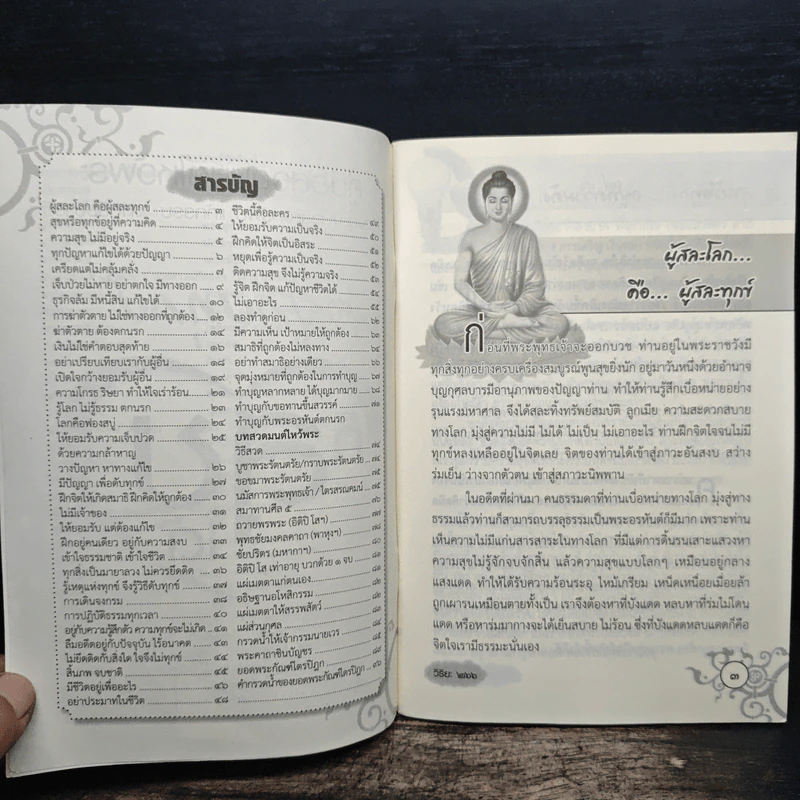 สารบัญ
ผู้สละโลก คือผู้สละทุกข์ ๓
สุขหรือทุกข์อยู่ที่ความคิด ๔
ความสุข ไม่มีอยู่จริง ๕
ทุกปัญหาแก้ไขได้ด้วยปัญญา ๖
เครียดแต่ไม่คลุ้มคลั่ง ๗
เจ็บป่วยไม่หาย อย่าตกใจ มีทางออก ๙
ธุรกิจล้ม มีหนี้สิน แก้ไขได้ ๑๐
การฆ่าตัวตาย ไม่ใช่ทางออกที่ถูกต้อง ๑๒
ฆ่าตัวตาย ต้องตกนรก ๑๔
เงินไม่ใช่คำตอบสุดท้าย ๑๖
อย่าเปรียบเทียบเรากับผู้อื่น ๑๘
เปิดใจกว้างยอมรับผู้อื่น ๑๙
ความโกรธ ริษยา ทำให้ใจเร่าร้อน ๒๑
รู้โลก ไม่รู้ธรรม ตกนรก ๒๓
โลกคือฟองสบู่ ๒๔
ให้ยอมรับความเจ็บปวด ๒๕
ด้วยความกล้าหาญ
วางปัญหา หาทางแก้ไข ๒๖
มีปัญญา เพื่อดับทุกข์ ๒๘
ฝึกจิตให้เกิดสมาธิ ฝึกคิดให้ถูกต้อง ๓๐
ไม่มีเจ้าของ ๓๑
ให้ยอมรับ แต่ต้องแก้ไข ๓๒
ฝึกอยู่คนเดียว อยู่กับความสงบ ๓๓
เข้าใจธรรมชาติ เข้าใจชีวิต ๓๔
ทุกสิ่งเป็นมายาลวง ไม่ควรยึดติด ๓๕
รู้เหตุแห่งทุกข์ จึงรู้วิธีดับทุกข์ ๓๗
การเดินจงกรม ๓๘
การปฏิบัติธรรมทุกเวลา ๔๐
อยู่กับความรู้สึกตัว ความทุกข์จะไม่เกิด ๔๑
ลืมอดีตอยู่กับปัจจุบัน ไร้อนาคต ๔๓
ไม่ยึดติดกับสิ่งใด ใจจึงไม่ทุกข์ ๔๔
สิ้นภพ จบชาติ ๔๕
มีชีวิตอยู่เพื่ออะไร ๔๖
อย่าประมาทในชีวิต ๔๘
ชีวิตนี้คือละคร ๔๙
ให้ยอมรับความเป็นจริง ๕๐
ฝึกคิดให้จิตเป็นอิสระ ๕๑
หยุดเพื่อรู้ความเป็นจริง ๕๒
ติดความสุข จึงไม่รู้ความจริง
รู้จิต ฝึกจิต แก้ปัญหาชีวิตได้
ไม่เอาอะไร
ลองทำดูก่อน ๖๒
มีความเห็น เป้าหมายให้ถูกต้อง
สมาธิที่ถูกต้องไม่หลงทาง
อย่าทำสมาธิอย่างเดียว
จุดมุ่งหมายที่ถูกต้องในการทำบุญ
ทำบุญหลากหลาย ได้บุญมากมาย
ทำบุญกับขอทานขึ้นสวรรค์
ทำบุญกับพระอรหันต์ตกนรก
บทสวดมนต์ไหว้พระ
วิธีสวด ๗๔
บูชาพระรัตนตรัย/กราบพระรัตนตรัย
ขอขมาพระรัตนตรัย ๗๕
นมัสการพระพุทธเจ้า / ไตรสรณคมน์ ๗๖
สมาทานศีล ๕
ถวายพรพระ (อิติปิ โสฯ)
พุทธชัยมงคลคาถา (พาหุงฯ)
ชัยปริตร (มหากาฯ)
อิติปิ โส เท่าอายุ บวกด้วย ๑ จบ
แผ่เมตตาแก่ตนเอง
อธิษฐานอโหสิกรรม
แผ่เมตตาให้สรรพสัตว์
แผ่ส่วนกุศล
กรวดน้ำให้เจ้ากรรมนายเวร
พระคาถาชินบัญชร
ยอดพระกัณฑ์ไตรปิฎก
คำกรวดน้ำของยอดพระกัณฑ์ไตรปิฎก ๙๖
ผู้สละโลก...
คือ... ผู้สละทุกข์
ก่อนที่พระพุทธเจ้าจะออกบวช ท่านอยู่ในพระราชวังมี
ทุกสิ่งทุกอย่างครบเครื่องสมบูรณ์พูนสุขยิ่งนัก อยู่มาวันหนึ่งด้วยอำนาจ
บุญกุศลบารมีอานุภาพของปัญญาท่าน ทำให้ท่านรู้สึกเบื่อหน่ายอย่าง
รุนแรงมหาศาล จึงได้สละทิ้งทรัพย์สมบัติ ลูกเมีย ความสะดวกสบาย
ทางโลก มุ่งสู่ความไม่มี ไม่ได้ ไม่เป็น ไม่เอาอะไร ท่านฝึกจิตใจจนไม่มี
ทุกข์หลงเหลืออยู่ในจิตเลย จิตของท่านได้เข้าสู่สภาวะอันสงบ สว่าง
ร่มเย็น ว่างจากตัวตน เข้าสู่สภาวะนิพพาน
ในอดีตที่ผ่านมา คนธรรมดาที่ท่านเบื่อหน่ายทางโลก มุ่งสู่ทาง
ธรรมแล้วท่านก็สามารถบรรลุธรรมเป็นพระอรหันต์ก็มีมาก เพราะท่าน
เห็นความไม่มีแก่นสารสาระในทางโลก ที่มีแต่การดิ้นรนเสาะแสวงหา
ความสุขไม่รู้จักจบจักสิ้น แล้วความสุขแบบโลกๆ เหมือนอยู่กลาง
แสงแดด ทำให้ได้รับความร้อนระอุ ไหม้เกรียม เหน็ดเหนื่อยเมื่อยล้า
ถูกเผารนเหมือนตายทั้งเป็น เราจึงต้องหาที่บังแดด หลบหาที่ร่มไม่โดน
แดด หรือหาร่มมากางจะได้เย็นสบาย ไม่ร้อน ซึ่งที่บังแดดหลบแดดก็คือ
จิตใจเรามีธรรมะนั่นเอง
วิริยะ: ๒๗๖๖
๓